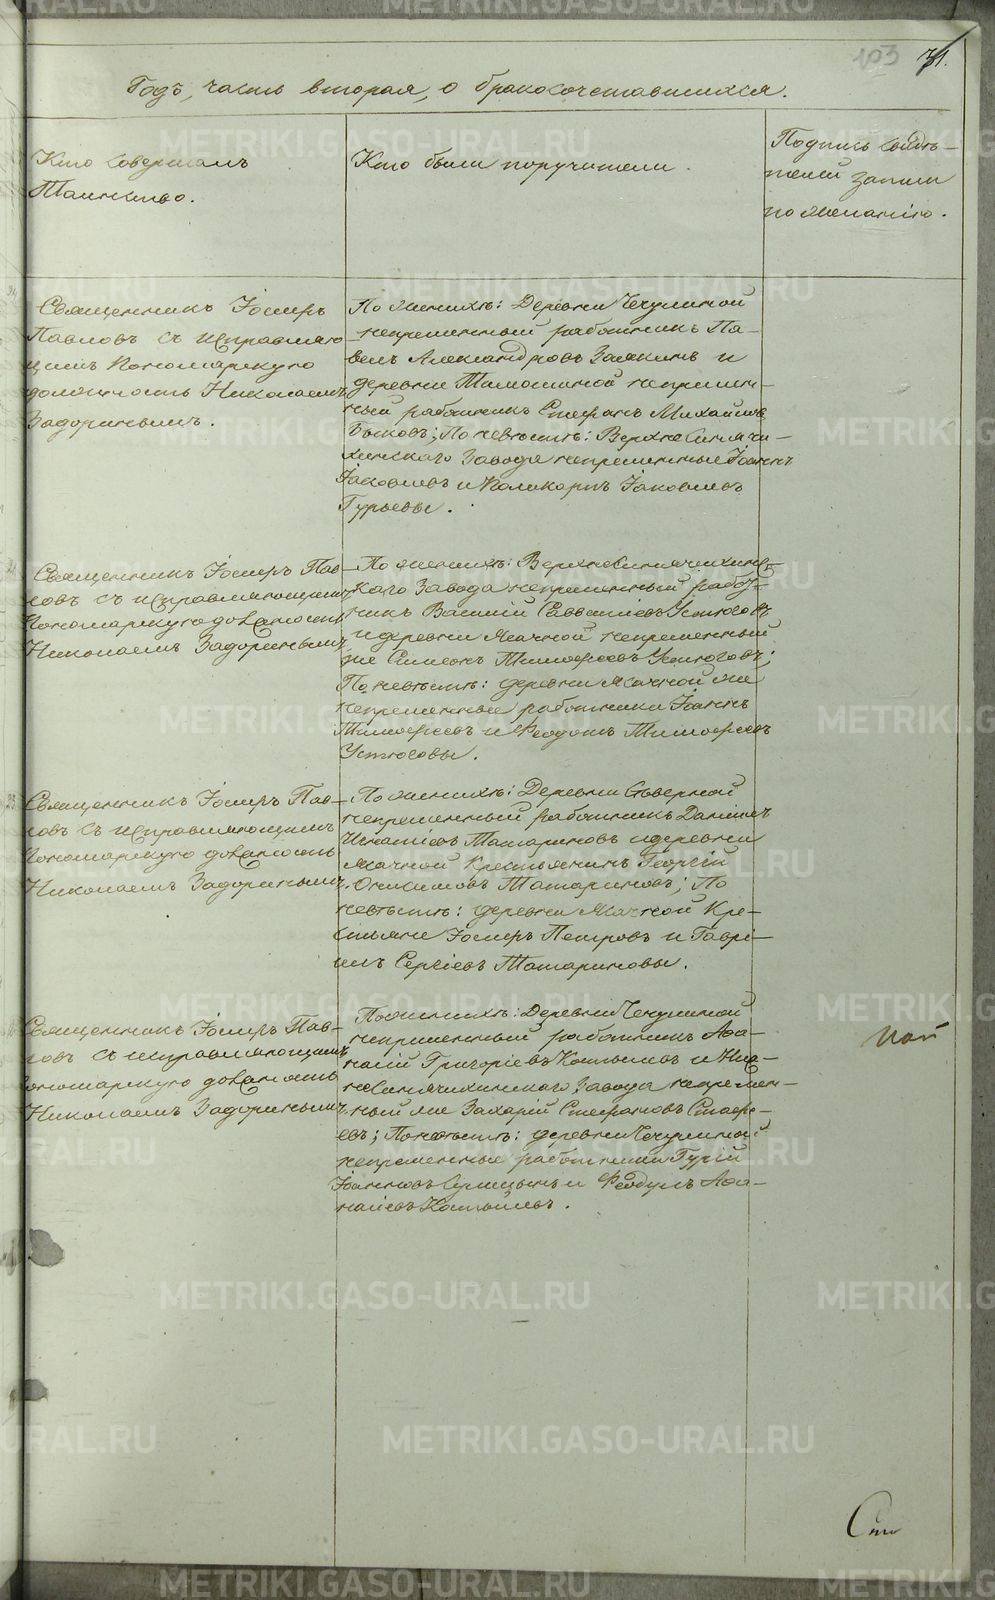 103 71.
Годъ, часть вторая, о бракосочетавшихся.
Кто совершалъ
Таинство.
Кто были поручители.
Подпись свидѣ-
телей записи
по желанію.
Священникъ Іосифъ
Павловъ съ исправляю-
щимъ Пономарскую
должность Николаемъ
Задоринымъ.
По женихѣ: Деревни Чечулиной
непременный работникъ Па-
велъ Александровъ Замкинъ и
деревни Тимошиной непремен-
ный работникъ Стефанъ Михайловъ
Быковъ; По невѣстѣ: Верхнесинячи-
хинскаго Завода непременные Іоаннъ
Іаковлевъ и Поликарпъ Іаковлевъ
Гурьевы.
Священникъ Іосифъ Пав-
ловъ съ исправляющимъ
Пономарскую должность
Николаемъ Задоринымъ
По женихѣ: Верхнесинячихинс-
каго Завода непременный работ-
никъ Василій Савватіевъ Устюговъ
и деревни Мачной непременный
же Симеонъ Тимофеевъ Устюговъ;
По невѣстѣ: деревни Мачной же
непременные работники Іоаннъ
Тимофеевъ и Феодотъ Тимофеевъ
Устюговы.
Священникъ Іосифъ Пав-
ловъ съ исправляющимъ
Пономарскую должность
Николаемъ Задоринымъ.
По женихѣ: Деревни Сѣверной
непременный работникъ Даніилъ
Игнатіевъ Татариновъ и деревни
Мачной Крестьянинъ Георгій
Онисимовъ Татариновъ; По
невѣстѣ: деревни Мачной Кре-
стьяне Іосифъ Петровъ и Гаврі-
илъ Сергіевъ Татариновы.
Священникъ Іосифъ Пав-
ловъ съ исправляющимъ
Пономарскую должность
Николаемъ Задоринымъ.
По женихѣ: Деревни Чечулиной
непременный работникъ Афа-
насій Григоріевъ Костылевъ и Ниж-
несинячихинскаго Завода непремен-
ный же Захарій Стефановъ Стафе-
евъ; По невѣстѣ: деревни Чечулиной
непременные работники Гурій
Іоанновъ Сулицынъ и Феодулъ Афа-
насіевъ Костылевъ.